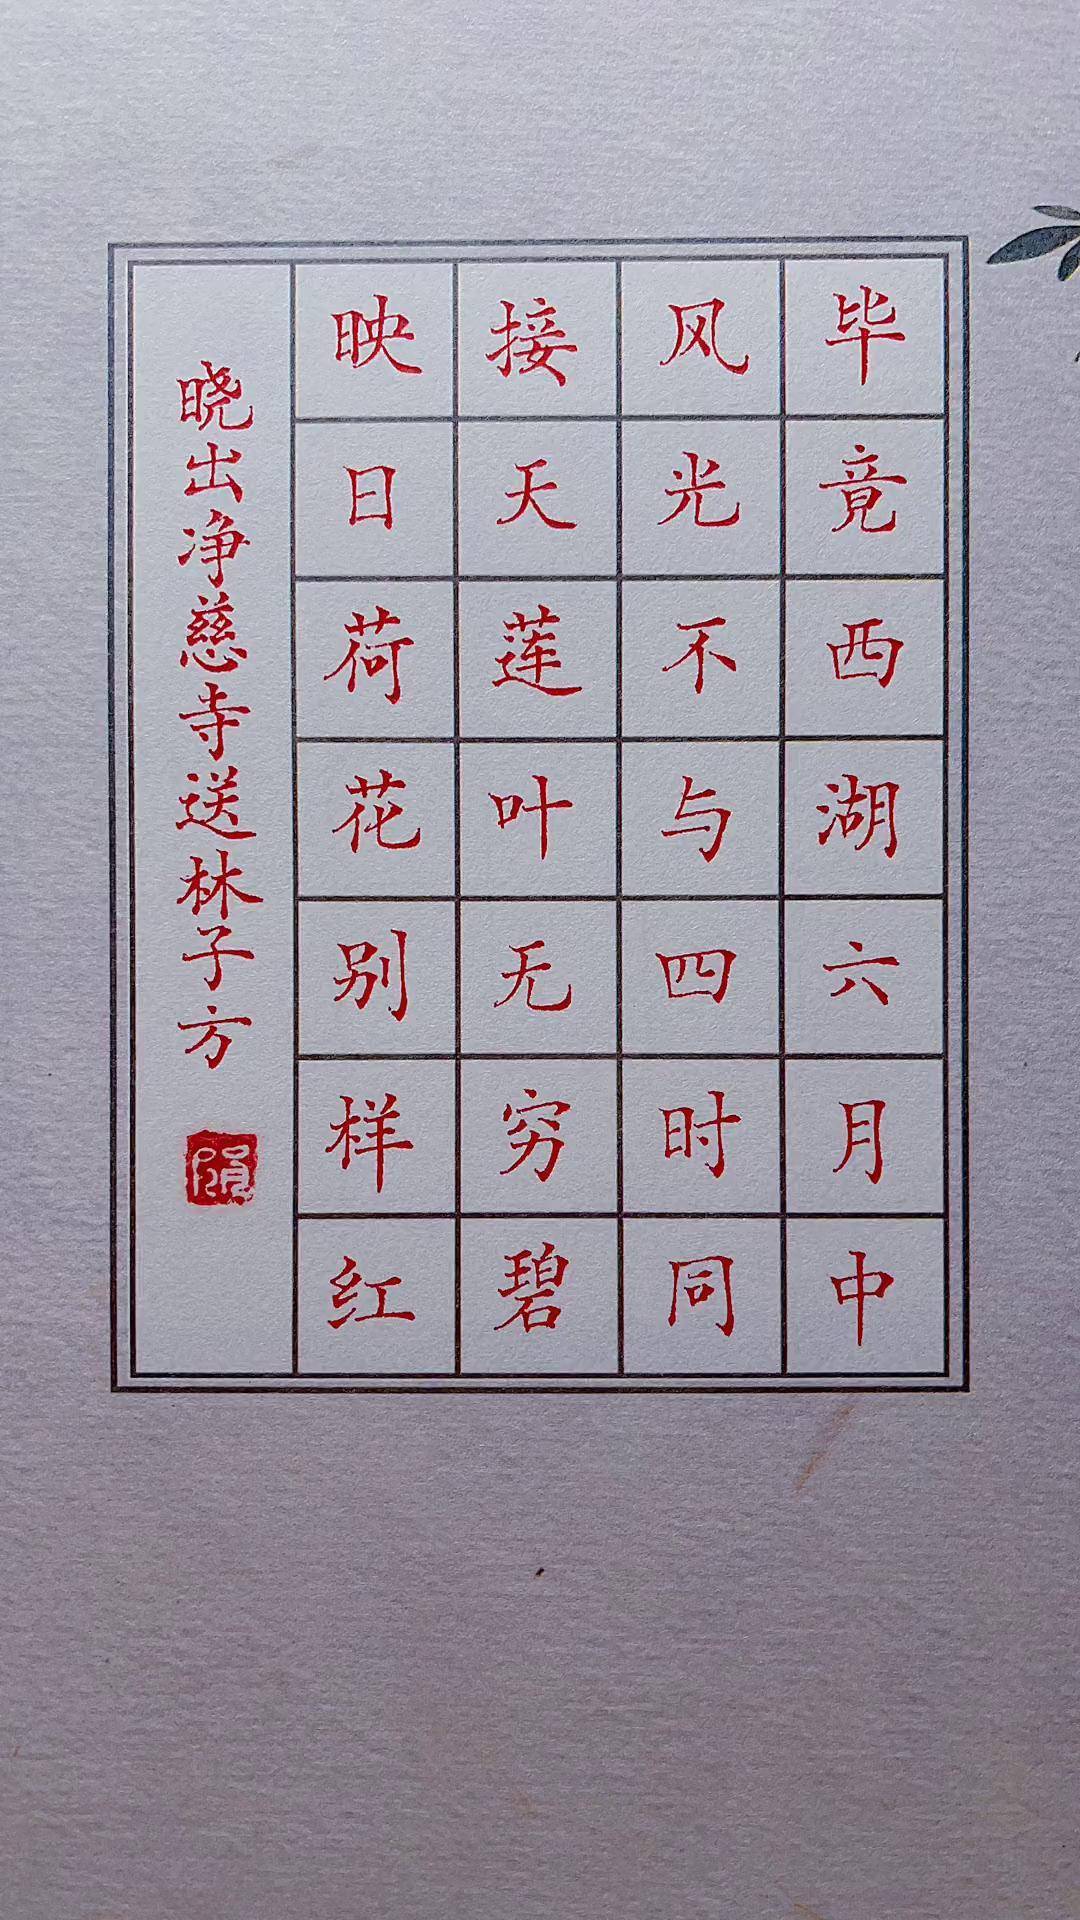 毕竟西湖六月中
风光不与四时同
接天莲叶无穷碧
映日荷花别样红
晓出净慈寺送林子方